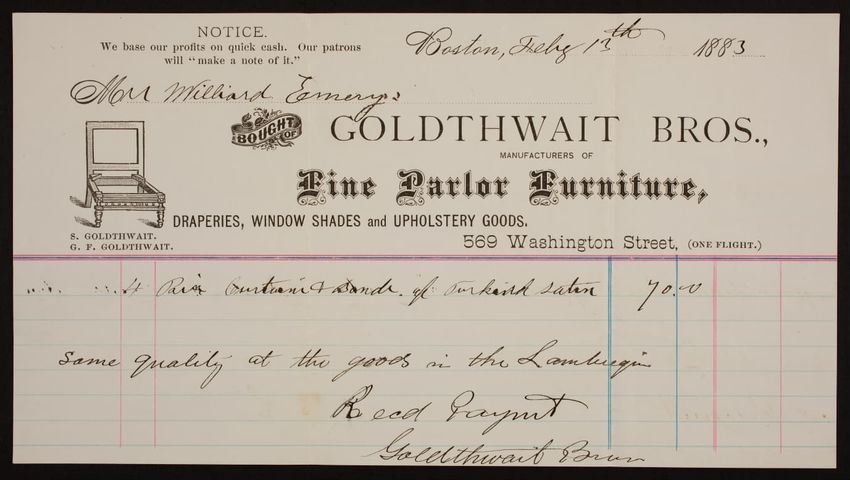 NOTICE.
We base our profits on quick cash. Our patrons
will "make a note of it."
Boston, Feby 13th 1883
Mr Williard Emery:
BOUGHT OF
GOLDTHWAIT BROS.,
MANUFACTURERS OF
Fine Parlor Furniture,
DRAPERIES, WINDOW SHADES and UPHOLSTERY GOODS.
S. GOLDTHWAIT.
G. F. GOLDTHWAIT.
569 Washington Street, (ONE FLIGHT.)
4 Pair Curtains & Bands of Turkish Satin 70.00
Same quality as the goods in the Lambrequin
Recd Paymt
Goldthwait Bros